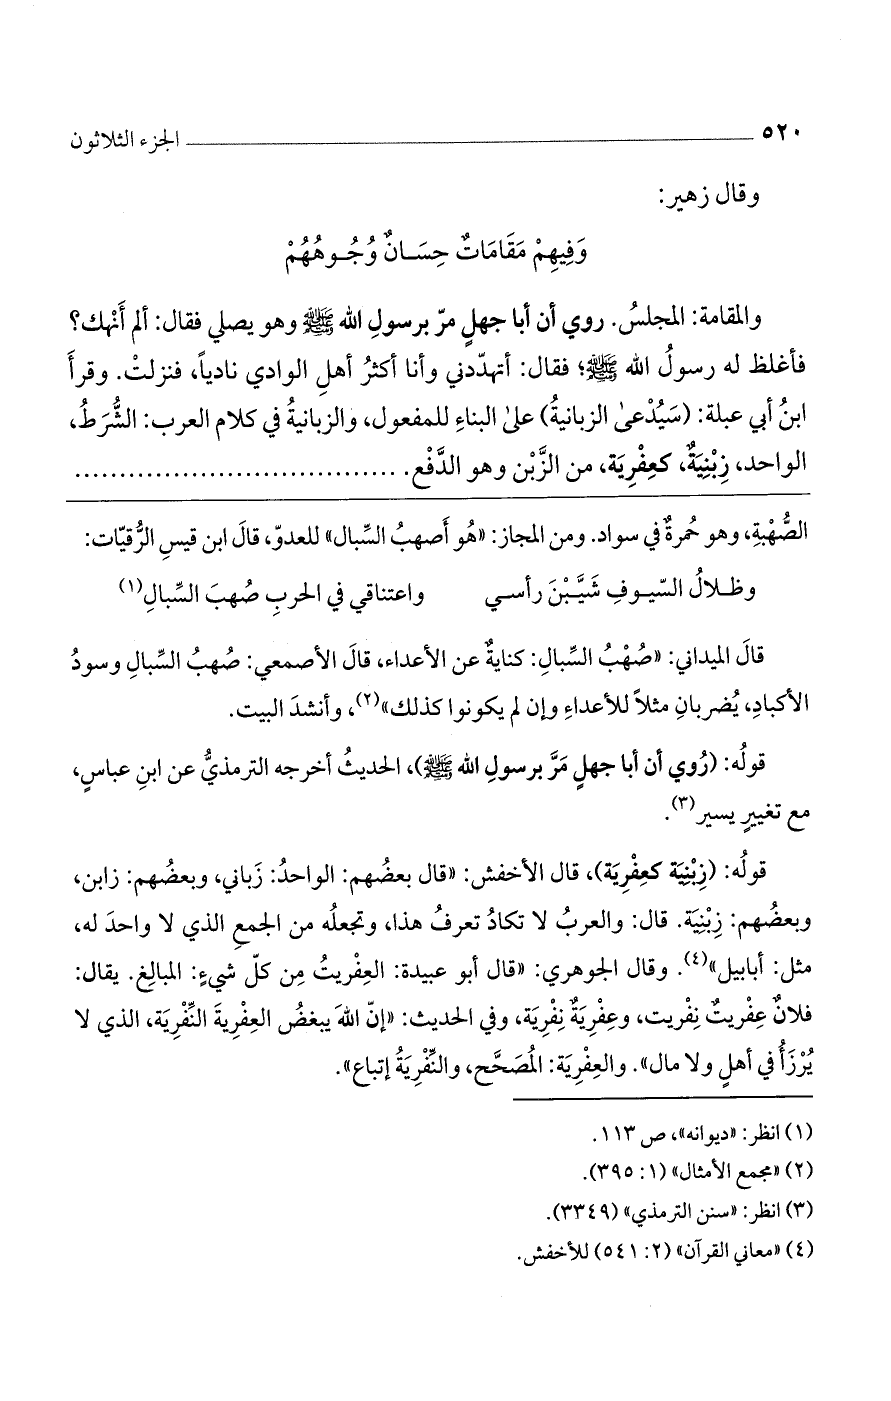 ٥٢٠ الجزء الثلاثون
وقال زهير:
وَفِيهِمْ مَقَامَاتٌ حِسَـانٌ وُجُـوهُهُمْ
والمقامة: المجلسُ. روي أن أبا جهلٍ مرّ برسولِ الله ﷺ وهو يصلي فقال: ألم أَنْهك؟
فأغلظ له رسولُ الله ﷺ؛ فقال: أتهدّدني وأنا أكثرُ أهلِ الوادي نادياً، فنزلتْ. وقرأَ
ابنُ أبي عبلة: (سَيُدْعىٰ الزبانيةُ) علىٰ البناءِ للمفعول، والزبانيةُ في كلام العرب: الشُّرَطُ،
الواحد، زِبْنِيَةٌ، كعِفْرِيَة، من الزَّبْن وهو الدَّفْع. ....................................
الصُّهْبةِ، وهو حُمرةٌ في سواد. ومن المجاز: «هُو أَصهبُ السِّبال» للعدوّ، قالَ ابن قيسِ الرُّقيّات:
وظـلالُ السّيـوفِ شَيَّبْنَ رأسـي واعتناقي في الحربِ صُهبَ السِّبالِ(١)
قالَ الميداني: «صُهْبُ السِّبالِ: كنايةٌ عن الأعداء، قالَ الأصمعي: صُهبُ السِّبالِ وسودُ
الأكبادِ، يُضربانِ مثلاً للأعداءِ وإن لم يكونوا كذلك»(٢)، وأنشدَ البيت.
قولُه: (رُوي أن أبا جهلٍ مَرَّ برسولِ الله ﷺ)، الحديثُ أخرجه الترمذيُّ عن ابنِ عباسٍ،
مع تغييرٍ يسير(٣).
قولُه: (زِبْنِيَة كعِفْرِيَة)، قال الأخفش: «قال بعضُهم: الواحدُ: زَباني، وبعضُهم: زابن،
وبعضُهم: زِبْنِيَة. قال: والعربُ لا تكادُ تعرفُ هذا، وتجعلُه من الجمعِ الذي لا واحدَ له،
مثل: أبابيل»(٤). وقال الجوهري: «قال أبو عبيدة: العِفْريتُ مِن كلّ شيءٍ: المبالِغ. يقال:
فلانٌ عِفْريتٌ نِفْريت، وعِفْرِيَةٌ نِفْرِيَة، وفي الحديث: «إنّ اللهَ يبغضُ العِفْريةَ النِّفْرِيَة، الذي لا
يُرْزَأُ في أهلٍ ولا مال». والعِفْرِيَة: المُصَحَّح، والنِّفْرِيَةُ إتباع».
(١) انظر: «ديوانه»، ص ١١٣.
(٢) «مجمع الأمثال» (١: ٣٩٥).
(٣) انظر: «سنن الترمذي» (٣٣٤٩).
(٤) «معاني القرآن» (٢: ٥٤١) للأخفش.